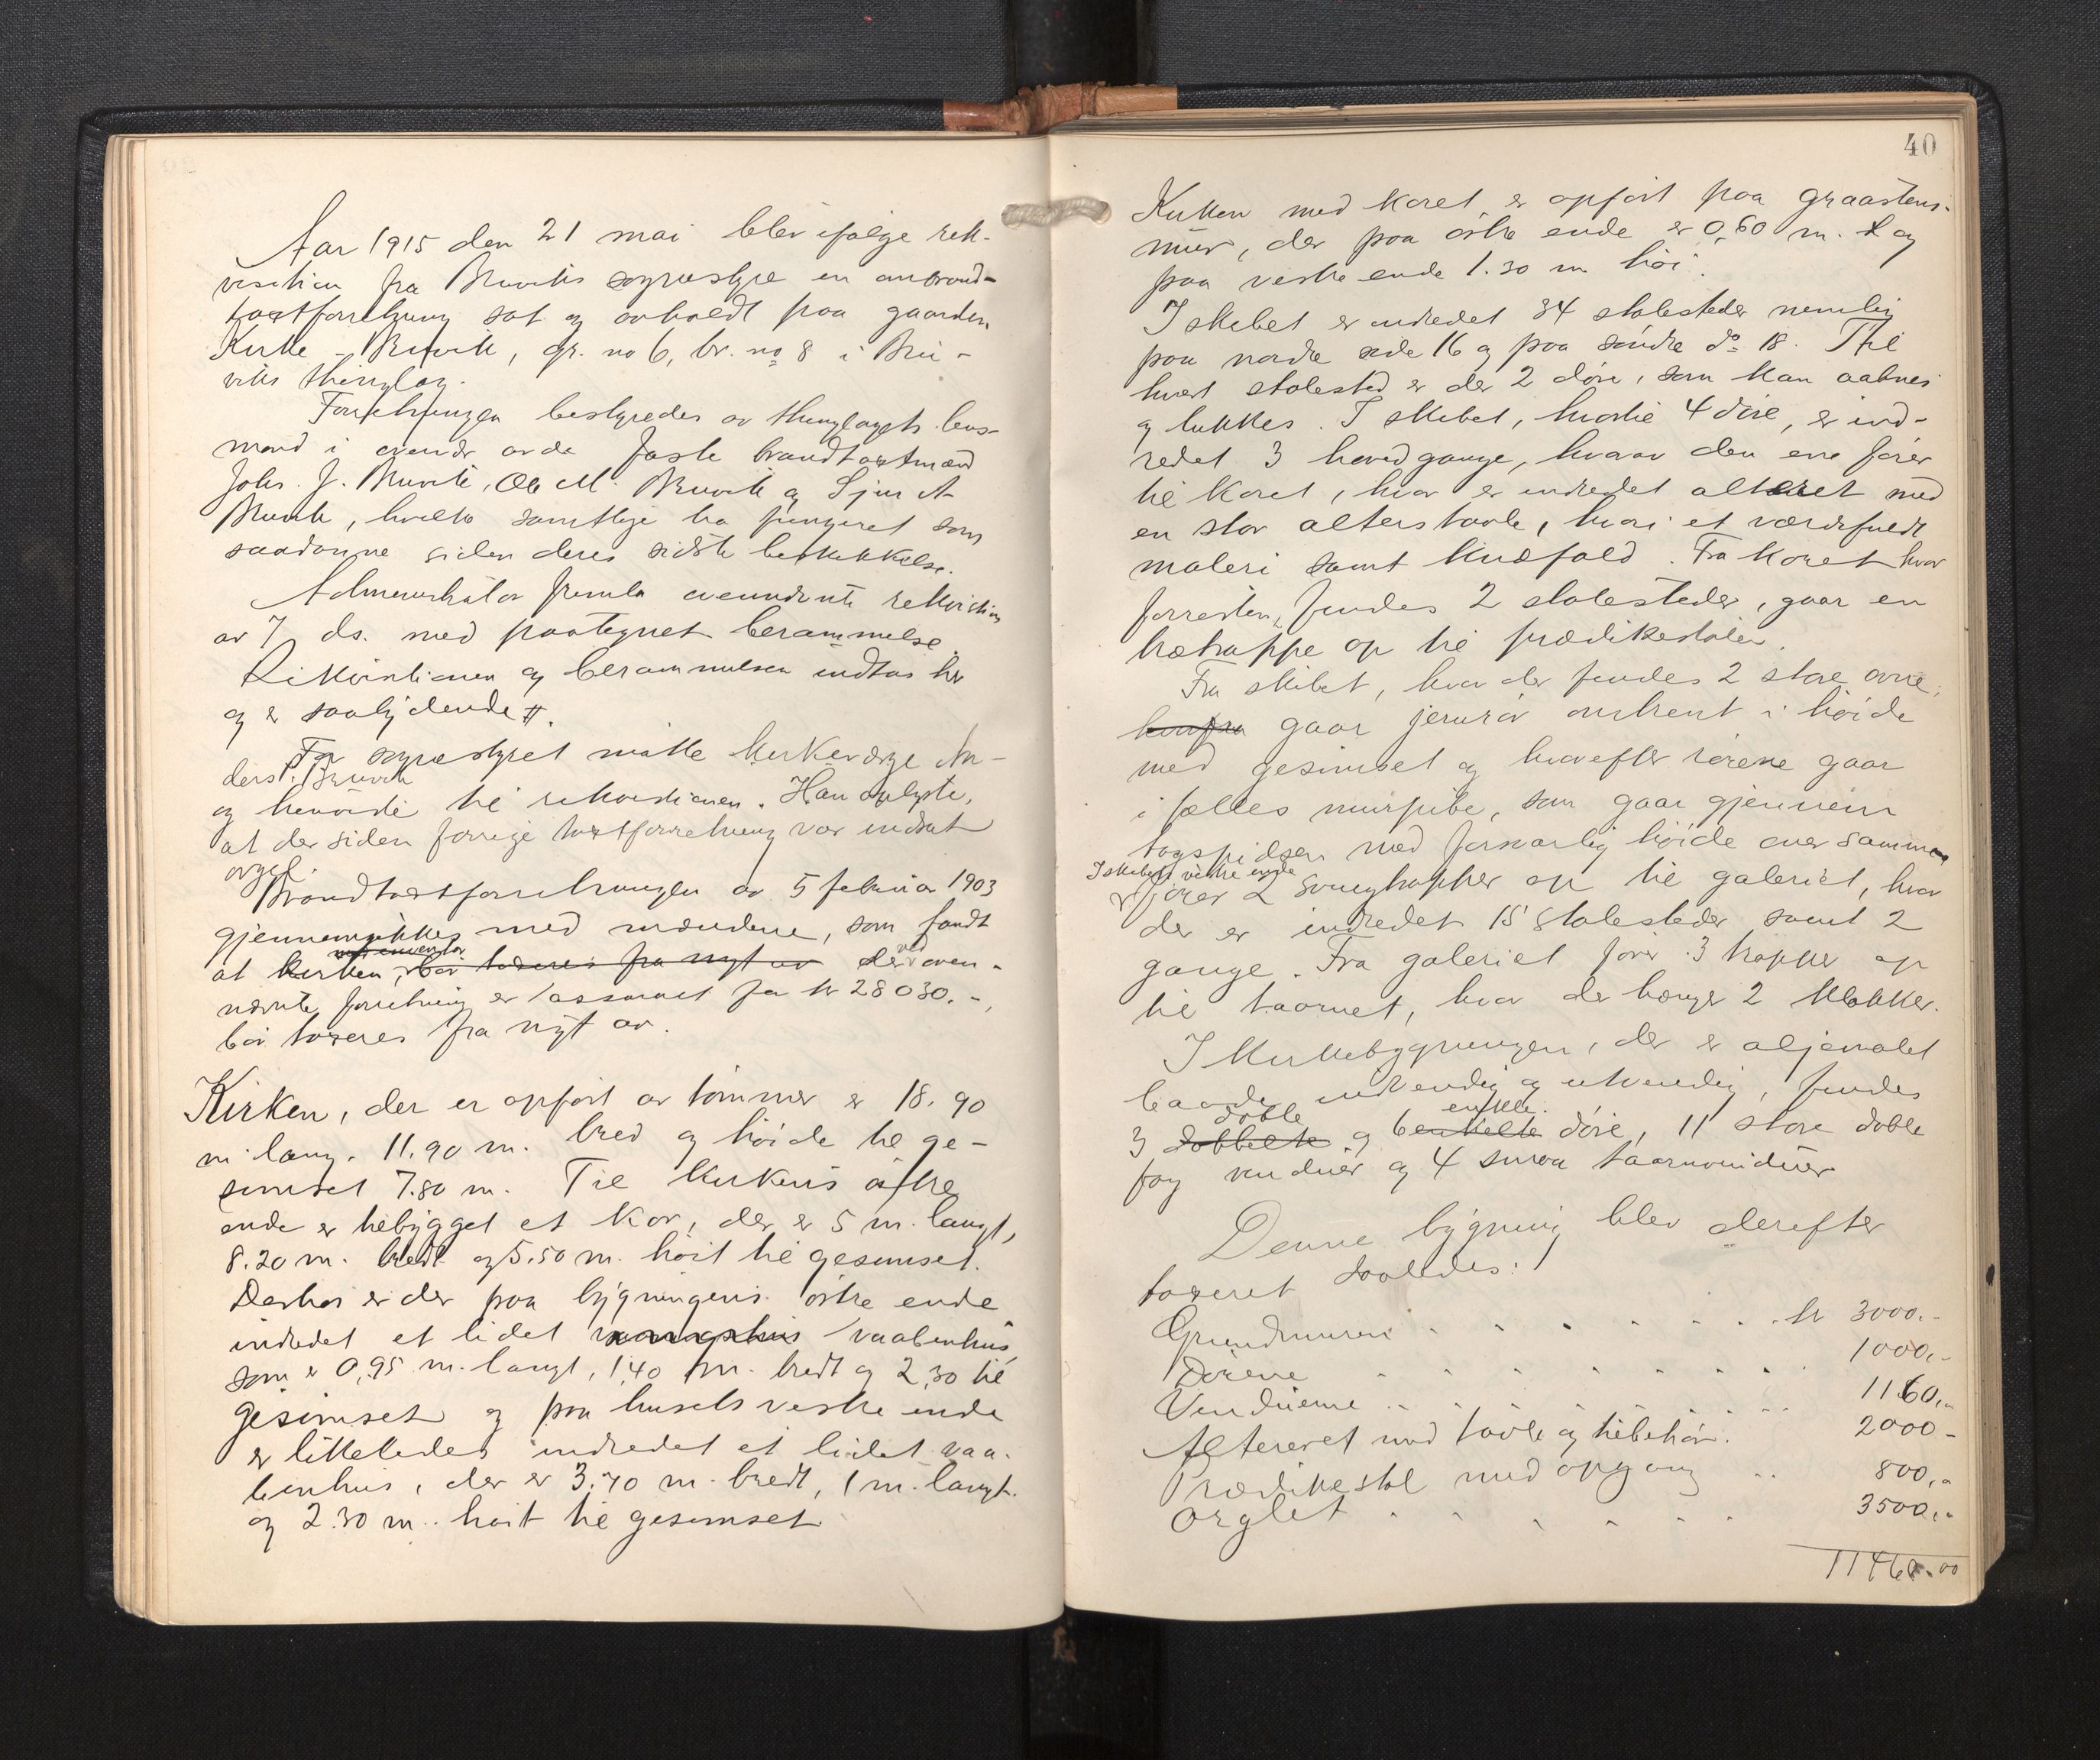 Aar 1915 den 21 mai blev ifølge rek-
visition fra Bruviks sognestyre en ombrand-
taxtforretning sat og avholdt paa gaarden
Kirke-Bruvik, gr. no 6, br. no 8 i Bru-
viks thinglag.
Forretningen bestyredes av thinglagets lens-
mand i overvær av de faste brandtaxtmænd
Johs. J. Bruvik, Ole M. Bruvik og Sjur A
Bruvik, hvilke samtlige har fungeret som
saadanne siden deres sidste beskikkelse.
Administrator fremla ovennævnte rekvisition
av 7 ds. med paategnet berammelse.
Rekvisitionen og berammelsen indtas her
og er saalydende #.
For sognestyret møtte kirkeverge An-
ders P. Bruvik
og henviste til rekvisitionen. Han oplyste,
at der siden forrige taxtforretning var indsat
orgel.
Brandtaxtforretningen av 5 februar 1903
gjennemgikkes med mændene, som fandt
at kirken, med inventar bør taxeres fra nyt av der ved oven-
nævnte forretning er assureret for kr 28030.-,
bør taxeres fra nyt av.
Kirken, der er opført av tømmer er 18.90
m. lang. 11.90 m. bred og høide til ge-
simset 7.80 m. Til kirkens østre
ende er tilbygget et kor, der er 5 m. langt,
8.20 m. bredt og 5.50 m. høit til gesimset.
Derhos er der paa bygningens østre ende
indredet et lidet vaabenhus,
som er 0,95 m. langt, 1,40 m. bredt og 2,30 til
gesimset og paa husets vestre ende
er likeledes indredet et lidet vaa-
benhus, der er 3.70 m. bredt, 1 m. langt
og 2.30 m. høit til gesimset
40
Kirken med koret er opført paa graastens-
mur, der paa østre ende er 0,60 m. og
paa vestre ende 1.30 m høi.
I skibet er indredet 34 stolesteder nemlig
paa nordre side 16 og paa søndre do 18. Til
hvert stolested er der 2 døre, som kan aabnes
og lukkes. I skibet, hvortil 4 døre, er ind-
redet 3 hovedgange, hvorav den ene fører
til koret, hvor er indredet alteret med
en stor alterstavle, hvori et værdifuldt
maleri samt knæfald. Fra koret hvor
forresten, findes 2 stolesteder, gaar en
trætrappe op til prædikestolen.
Fra skibet, hvor der findes 2 store ovne,
herfra gaar jernrør omtrent i høide
med gesimset og hvorefter rørene gaar
i fælles murpibe, som gaar gjennem
tagspidsen med forsvarlig høide over samme
I skibets vestre ende
fører 2 svingtrapper op til galeriet, hvor
der er indredet 15 stolesteder samt 2
gange. Fra galeriet fører 3 trapper op
til taarnet, hvor der hænger 2 klokker.
I kirkebygningen, der er oljemalet
baade indvendig og utvendig, findes
3 dobbelte doble og 6 enkelte enkle. døre, 11 store doble
fag vinduer og 4 smaa taarnvinduer
Denne bygning blev derefter
taxeret saaledes:
Grundmuren . . . . . . . . kr 3000.-
Dørene . . . . . . . . 1000,-
Vinduerne . . . . . . . . 1160,-
Alteret med tavle og tilbehør. 2000-
Prædikestol med opgang .. 800,-
Orglet . . . . . . 3500,-
11460.00